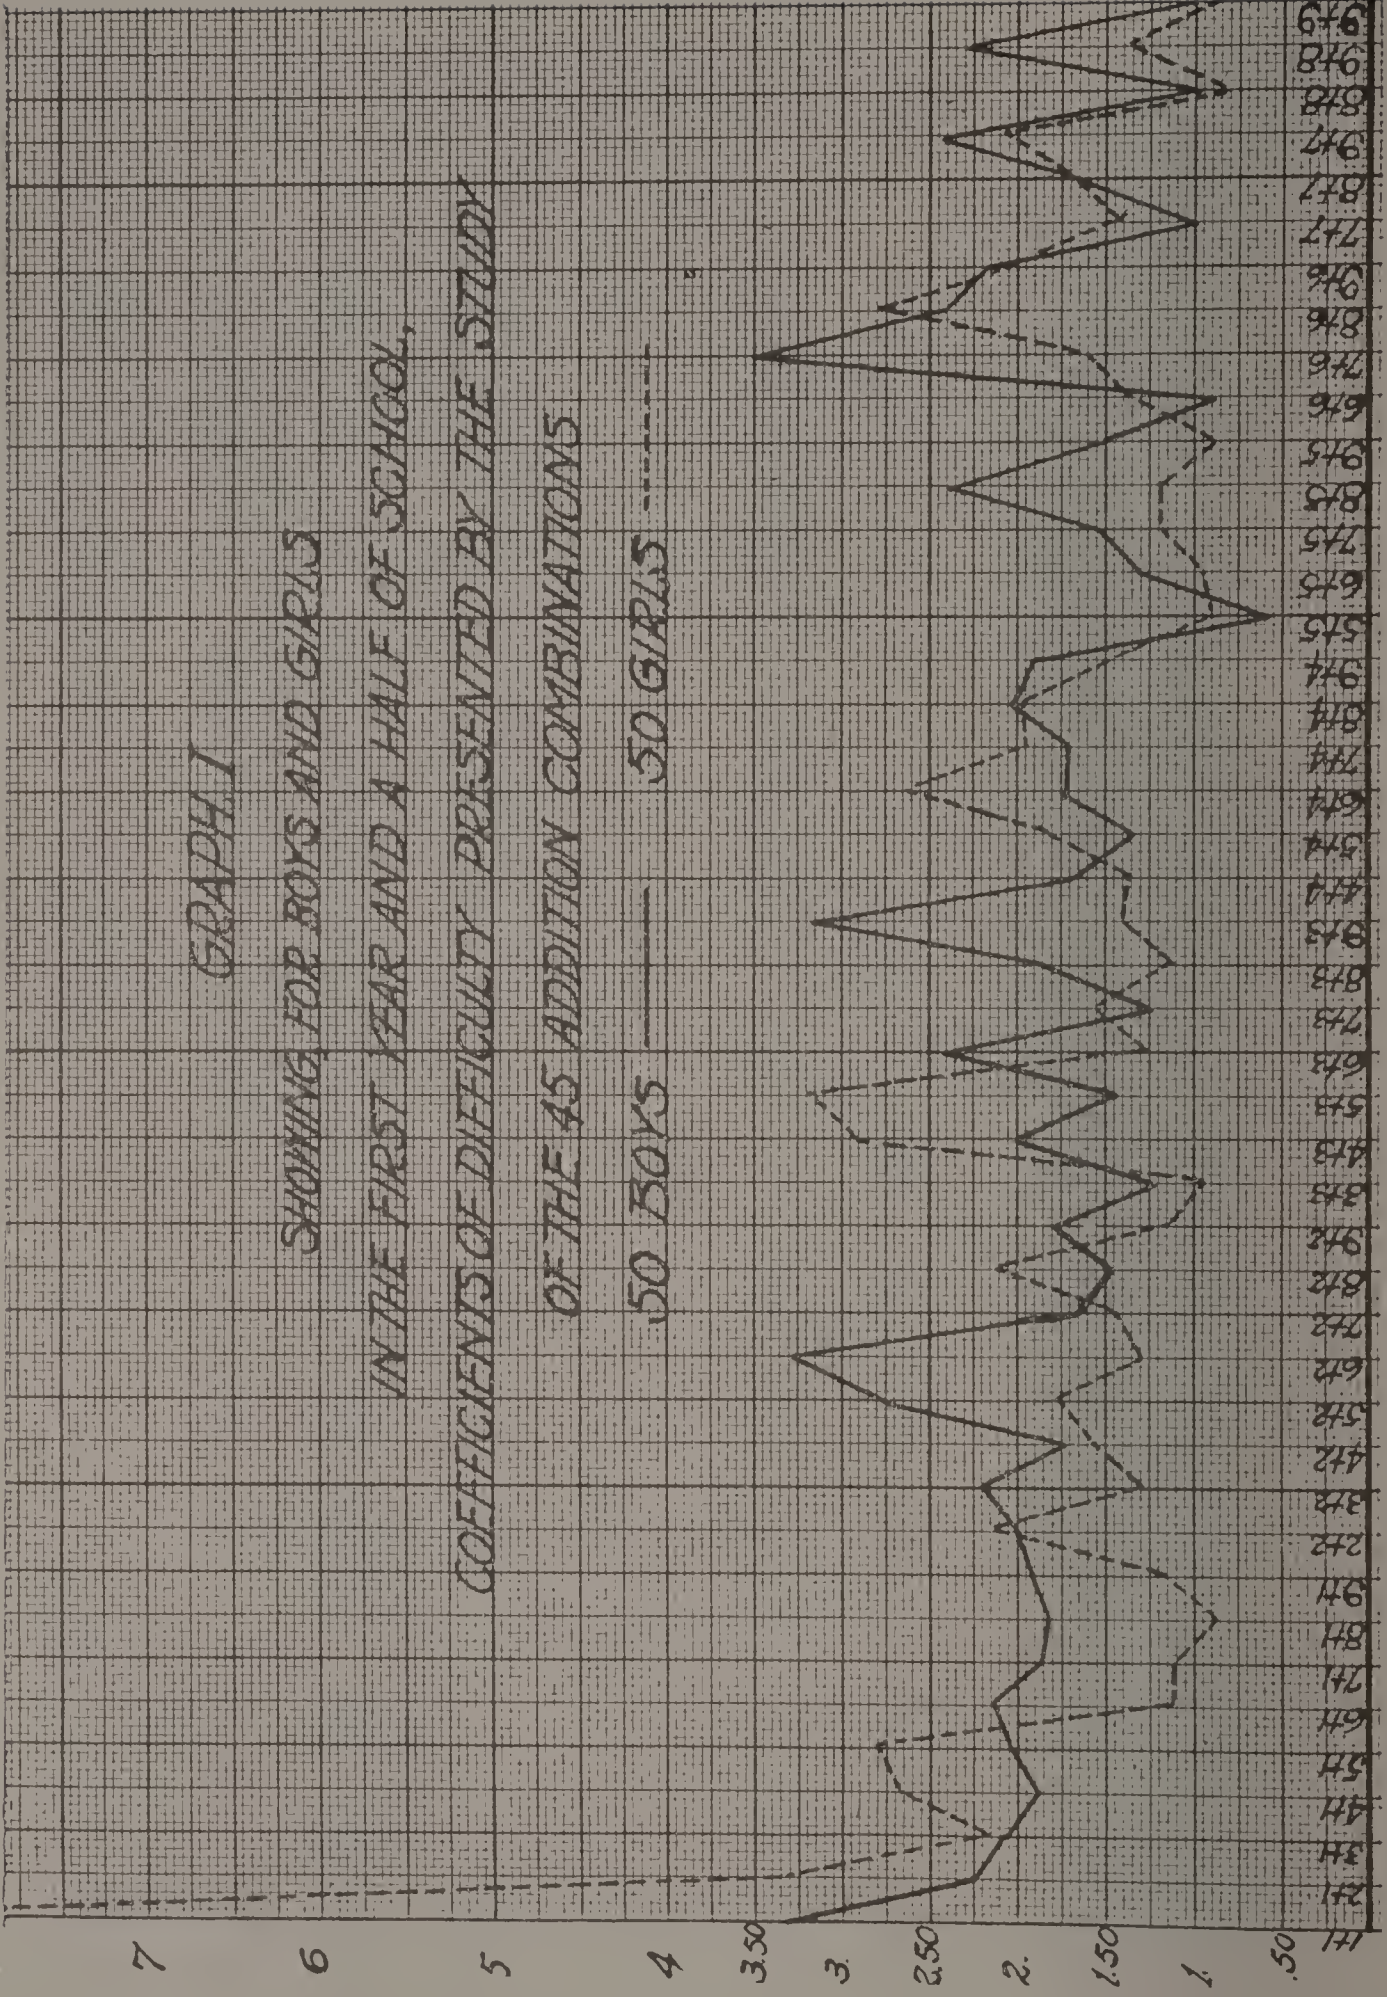 GRAPH. I
SHOWING, FOR BOYS AND GIRLS
IN THE FIRST YEAR AND A HALF OF SCHOOL,
COEFFICIENTS OF DIFFICULTY PRESENTED BY THE STUDY
OF THE 45 ADDITION COMBINATIONS
50 BOYS 50 GIRLS
7
6
5
4
3.50
3.
2.50
2.
1.50
1.
.50
1+1
2+1
3+1
4+1
5+1
6+1
7+1
8+1
9+1
2+2
3+2
4+2
5+2
6+2
7+2
8+2
9+2
3+3
4+3
5+3
6+3
7+3
8+3
9+3
4+4
5+4
6+4
7+4
8+4
9+4
5+5
6+5
7+5
8+5
9+5
6+6
7+6
8+6
9+6
7+7
8+7
9+7
8+8
9+8
9+9